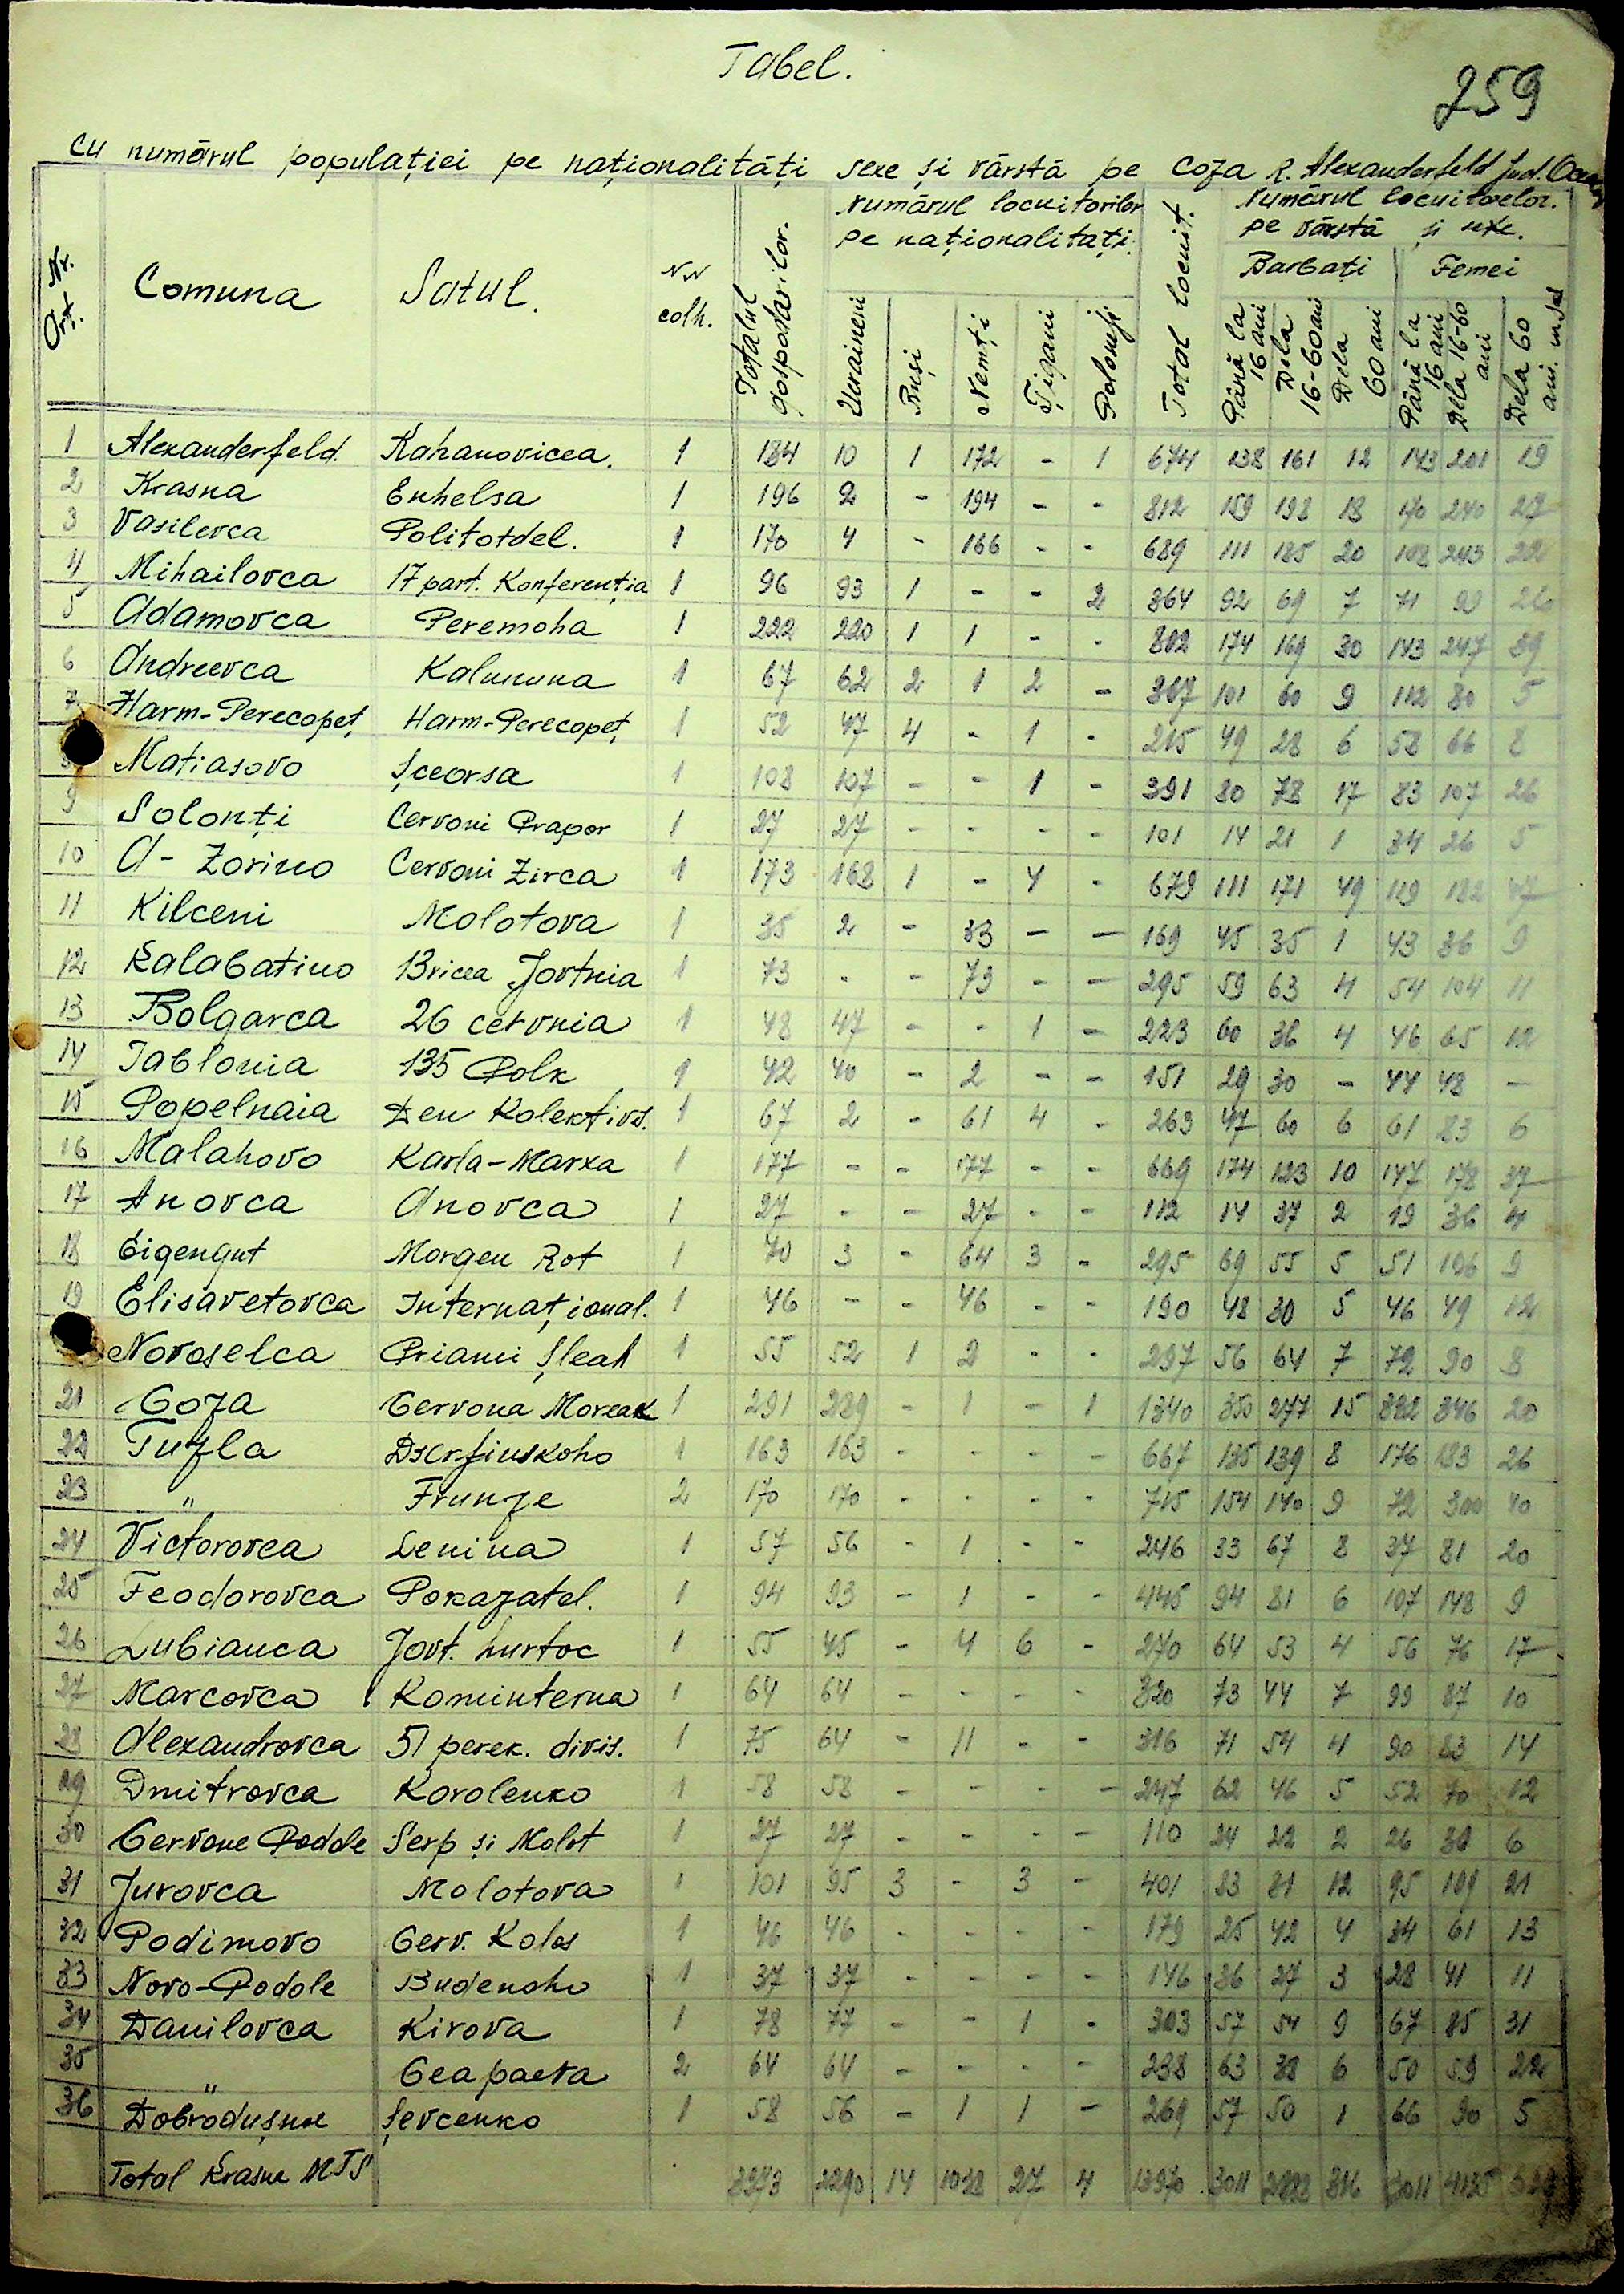 Tabel.
259
cu numărul populației pe naționalități sexe și vârstă pe Coza R. Alexanderfeld Jud.
Nr. Crt.
Comuna
Satul.
NN colh.
Totalul gospodarilor.
Numărul locuitorilor pe naționalitați.
Ucraineni
Ruși
Nemți
Țigani
Poloneji
Total locuit.
Numărul locuitorelor. pe vârstă și sexe.
Barbați
Femei
Până la 16 ani
Dela 16-60 ani
Dela 60 ani
Până la 16 ani
Dela 16-60 ani
Dela 60 ani. in sus
1 Alexanderfeld. Kahanovicea. 1 184 10 1 172 - 1 674 138 161 12 143 201 19
2 Krasna Enhelsa 1 196 2 - 194 - - 812 159 198 18 170 240 27
3 Vasilevca Politotdel. 1 170 4 - 166 - - 689 111 185 20 108 243 22
4 Mihailovca 17 part. Konferenția 1 96 93 1 - - 2 364 92 69 7 71 99 26
5 Adamovca Peremoha 1 222 220 1 1 - - 802 174 169 30 143 247 39
6 Andreevca Kalununa 1 67 62 2 1 2 - 367 101 60 9 112 80 5
7 Harm-Perecopeț Harm-Perecopeț 1 52 47 4 - 1 - 215 49 28 6 58 66 8
Matiasovo Șceorsa 1 108 107 - - 1 - 391 80 78 17 83 107 26
9 Solonți Cervoni Prapor 1 27 27 - - - - 101 14 21 1 34 26 5
10 A- Zorino Cervoni Zirca 1 173 168 1 - 4 - 679 111 171 49 119 182 47
11 Kilceni Molotova 1 35 2 - 33 - - 169 45 35 1 43 36 9
12 Kalabatino 13 ricea Jovtnia 1 73 - - 73 - - 295 59 63 4 54 104 11
13 Bolgarca 26 cetvnia 1 48 47 - - 1 - 223 60 36 4 46 65 12
14 Iablonia 135 Polk 1 42 40 - 2 - - 151 29 30 - 44 48 -
15 Popelnaia Den Kolektivs. 1 67 2 - 61 4 - 263 47 60 6 61 83 6
16 Malahovo Karla-Marxa 1 177 - - 177 - - 669 174 123 10 147 178 37
17 Anovca Anovca 1 27 - - 27 - - 112 14 37 2 19 36 4
18 Eigengut Morgen Rot 1 70 3 - 64 3 - 295 69 55 5 51 106 9
19 Elisavetovca Internațional. 1 46 - - 46 - - 190 48 30 5 46 49 12
Novoselca Priami Șleah 1 55 52 1 2 - - 297 56 64 7 72 90 8
21 Coza Cervona Moreak 1 291 289 - 1 - 1 1340 350 277 15 332 346 20
22 Tuzla Dzerfinskoho 1 163 163 - - - - 667 135 139 8 176 183 26
23 " Frunze 2 170 170 - - - - 715 154 140 9 72 300 40
24 Victorovca Lenina 1 57 56 - 1 - - 246 33 67 8 37 81 20
25 Feodorovca Pokazatel. 1 94 93 - 1 - - 445 94 81 6 107 148 9
26 Lubianca Jovt. hurtoc 1 55 45 - 4 6 - 270 64 53 4 56 76 17
27 Marcovca Kominterna 1 64 64 - - - - 320 73 44 7 99 87 10
28 Alexandrovca 51 perek. divis. 1 75 64 - 11 - - 316 71 54 4 90 83 14
29 Dmitrovca Korolenko 1 58 58 - - - - 247 62 46 5 52 70 12
30 Cervone Podole Serp și Molot 1 27 27 - - - - 110 24 22 2 26 30 6
31 Jurovca Molotova 1 101 95 3 - 3 - 401 83 81 12 95 109 21
32 Podimovo Cerv. Kolos 1 46 46 - - - - 179 25 42 4 34 61 13
33 Novo-Podole Budenoho 1 37 37 - - - - 146 36 27 3 28 41 11
34 Danilovca Kirova 1 78 77 - - 1 - 303 57 54 9 67 85 31
35 " Ceapaeva 2 64 64 - - - - 238 63 38 6 50 59 22
36 Dobrodușne Șevcenko 1 58 56 - 1 1 - 269 57 50 1 66 90 5
Total Krasna MTS 3373 2290 14 1038 27 4 13970 3011 2888 316 3011 4135